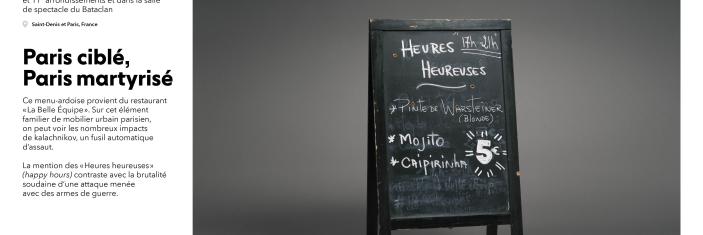 et 11e arrondissements et dans la salle
de spectacle du Bataclan
Saint-Denis et Paris, France
Paris ciblé,
Paris martyrisé
Ce menu-ardoise provient du restaurant
« La Belle Équipe ». Sur cet élément
familier de mobilier urbain parisien,
on peut voir les nombreux impacts
de kalachnikov, un fusil automatique
d’assaut.
La mention des « Heures heureuses »
(happy hours) contraste avec la brutalité
soudaine d’une attaque menée
avec des armes de guerre.
HEURES 17h-21h
HEUREUSES
* PINTE DE WARSTEINER
(BLONDE)
* MOJITO
* CAÏPIRINHA 5€